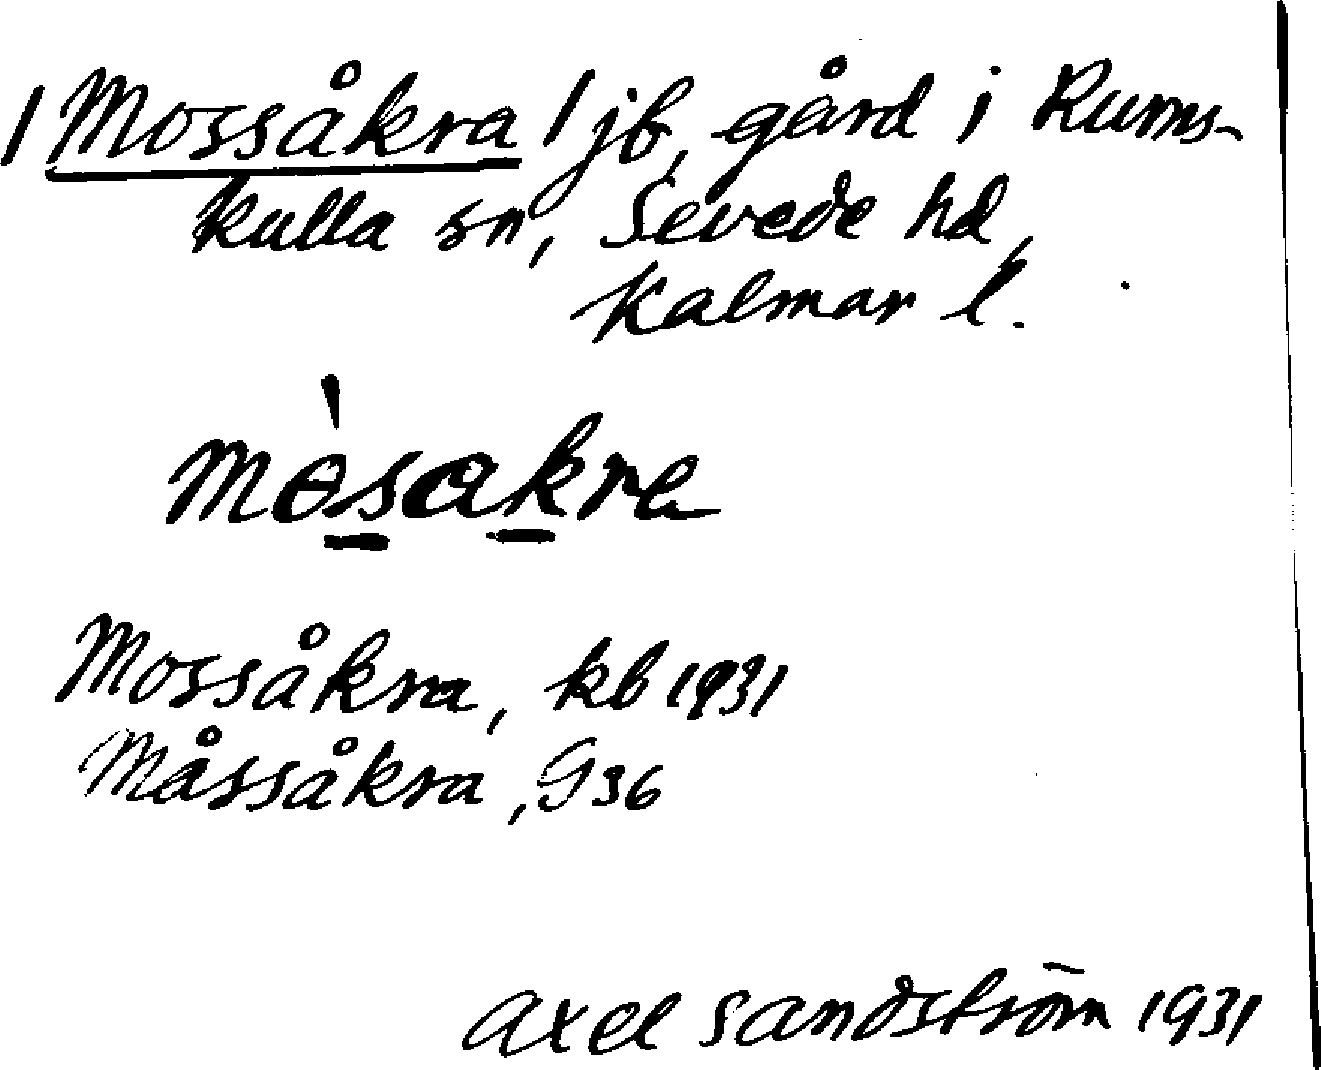 /Mossåkra/ jb, gård i Rums-
kulla sn, Sevede hd,
Kalmar l.
mòsakra
Mossåkra, kb 1931
Måssåkra, G 36
Axel Sandström 1931